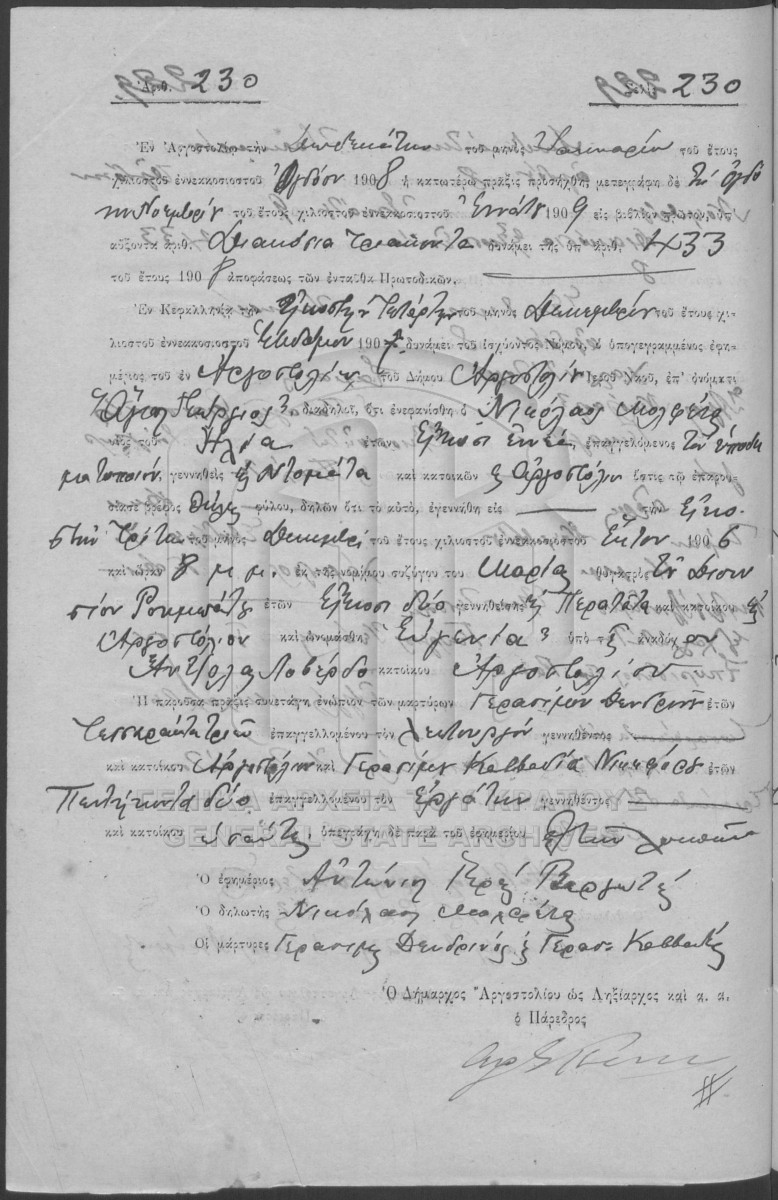 Ἀριθ. 230 230
Ἐν Ἀργοστολίῳ τὴν Δωδεκάτην τοῦ μηνὸς Ἰανουαρίου τοῦ ἔτους
χιλιοστοῦ ἐννεακοσιοστοῦ Ὀγδόου 1908 ἡ κατωτέρω πρᾶξις προσήχθη, μετεγράφη δὲ τῇ ὀγδό
ῃ Νοεμβρίου τοῦ ἔτους χιλιοστοῦ ἐννεακοσιοστοῦ Ἐννάτου 1909 εἰς βιβλίον πρῶτον, ὑπ'
αὔξοντα ἀριθ. Διακόσια Τριάκοντα δυνάμει τῆς ὑπ' ἀριθ. 1733
τοῦ ἔτους 1908 ἀποφάσεως τῶν ἐνταῦθα Πρωτοδικῶν.
Ἐν Κεφαλληνίᾳ τὴν Εἰκοστὴν Τετάρτην τοῦ μηνὸς Δεκεμβρίου τοῦ ἔτους χι-
λιοστοῦ ἐννεακοσιοστοῦ Ἑβδόμου 1907 δυνάμει τοῦ ἰσχύοντος Νόμου, ὁ ὑπογεγραμμένος ἐφη-
μέριος τοῦ ἐν Ἀργοστολίῳ τοῦ Δήμου Ἀργοστολίου Ἱεροῦ Ναοῦ, ἐπ' ὀνόματι
Ἅγιος Γεώργιος διαδηλοῖ, ὅτι ἐνεφανίσθη ὁ Νικόλαος Μολφέτας
υἱὸς τοῦ Ἠλία ἐτῶν Εἴκοσι Ἐννέα, ἐπαγγελόμενος τὸν ὑποδη
ματοποιόν, γεννηθεὶς ἐς Ντομάτα καὶ κατοικῶν ἐς Ἀργοστόλιον ὅστις τῷ ἐπαρου-
σίασε βρέφος Θῆλυ φύλου, δηλῶν ὅτι τὸ αὐτό, ἐγεννήθη εἰς — τὴν Εἰκο-
στὴν Τρίτην τοῦ μηνὸς Δεκεμβρίου τοῦ ἔτους χιλιοστοῦ ἐννεακοσιοστοῦ Ἕκτου 1906
καὶ ὥραν 8 μ. μ. ἐκ τῆς νομίμου συζύγου του Μαρίας θυγατρὸς τοῦ Διονυ
σίου Ρουμπάτη ἐτῶν Εἴκοσι δύο γεννηθείσης ἐς Περατάτα καὶ κατοίκου ἐς
Ἀργοστόλιον καὶ ὠνομάσθη Εὐγενία ὑπὸ τῆς ἀναδόχου
Ἀντζολας Λοβέρδο κατοίκου Ἀργοστολίου
Ἡ παροῦσα πρᾶξις συνετάγη ἐνώπιον τῶν μαρτύρων Γερασίμου Δενδρινοῦ ἐτῶν
Τεσσαράκοντα τριῶν ἐπαγγελλομένου τὸν Λειτουργόν γεννηθέντος —
καὶ κατοίκου Ἀργοστόλιον καὶ Γερασίμου Καββαδία Νικηφόρου ἐτῶν
Πεντήκοντα δύο ἐπαγγελλομένου τὸν Ἐργάτην γεννηθέντος —
ΓΕΝΙΚΑ ΑΡΧΕΙΑ ΤΟΥ ΚΡΑΤΟΥΣ
GENERAL STATE ARCHIVES
καὶ κατοίκου ἐνταῦθα, ὑπεγράφη δὲ παρὰ τοῦ ἐφημερίου
Ὁ ἐφημέριος Ἀντώνιος Ἱερεὺς Βεργωτῆς
Ὁ δηλωτὴς Νικόλαος Μολφέτας
Οἱ μάρτυρες Γεράσιμος Δενδρινός, Γεράσ. Καββαδίας
Ὁ Δήμαρχος Ἀργοστολίου ὡς Ληξίαρχος καὶ κ. α.
ὁ Πάρεδρος